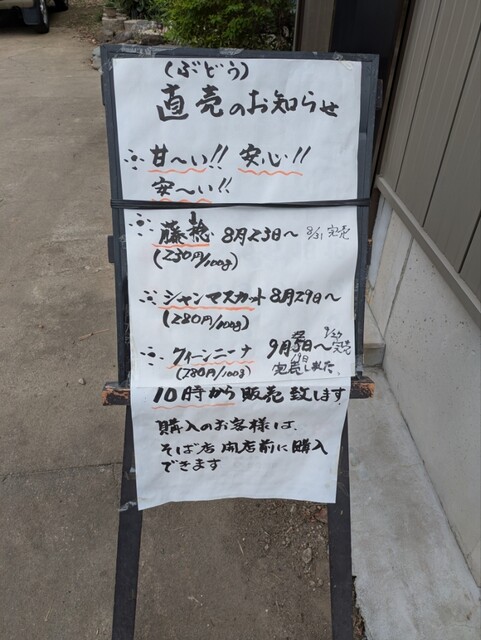 (ぶどう)
直売のお知らせ
甘〜い!! 安心!!
安〜い!!
藤稔 8月23日〜 8/31 完売
(230円/100g)
シャンマスカット 8月29日〜
(280円/100g)
クィーンニーナ 9月5日〜
(280円/100g) 完売しました。
10時から販売致します
購入のお客様は、
そば店 開店前に購入
できます